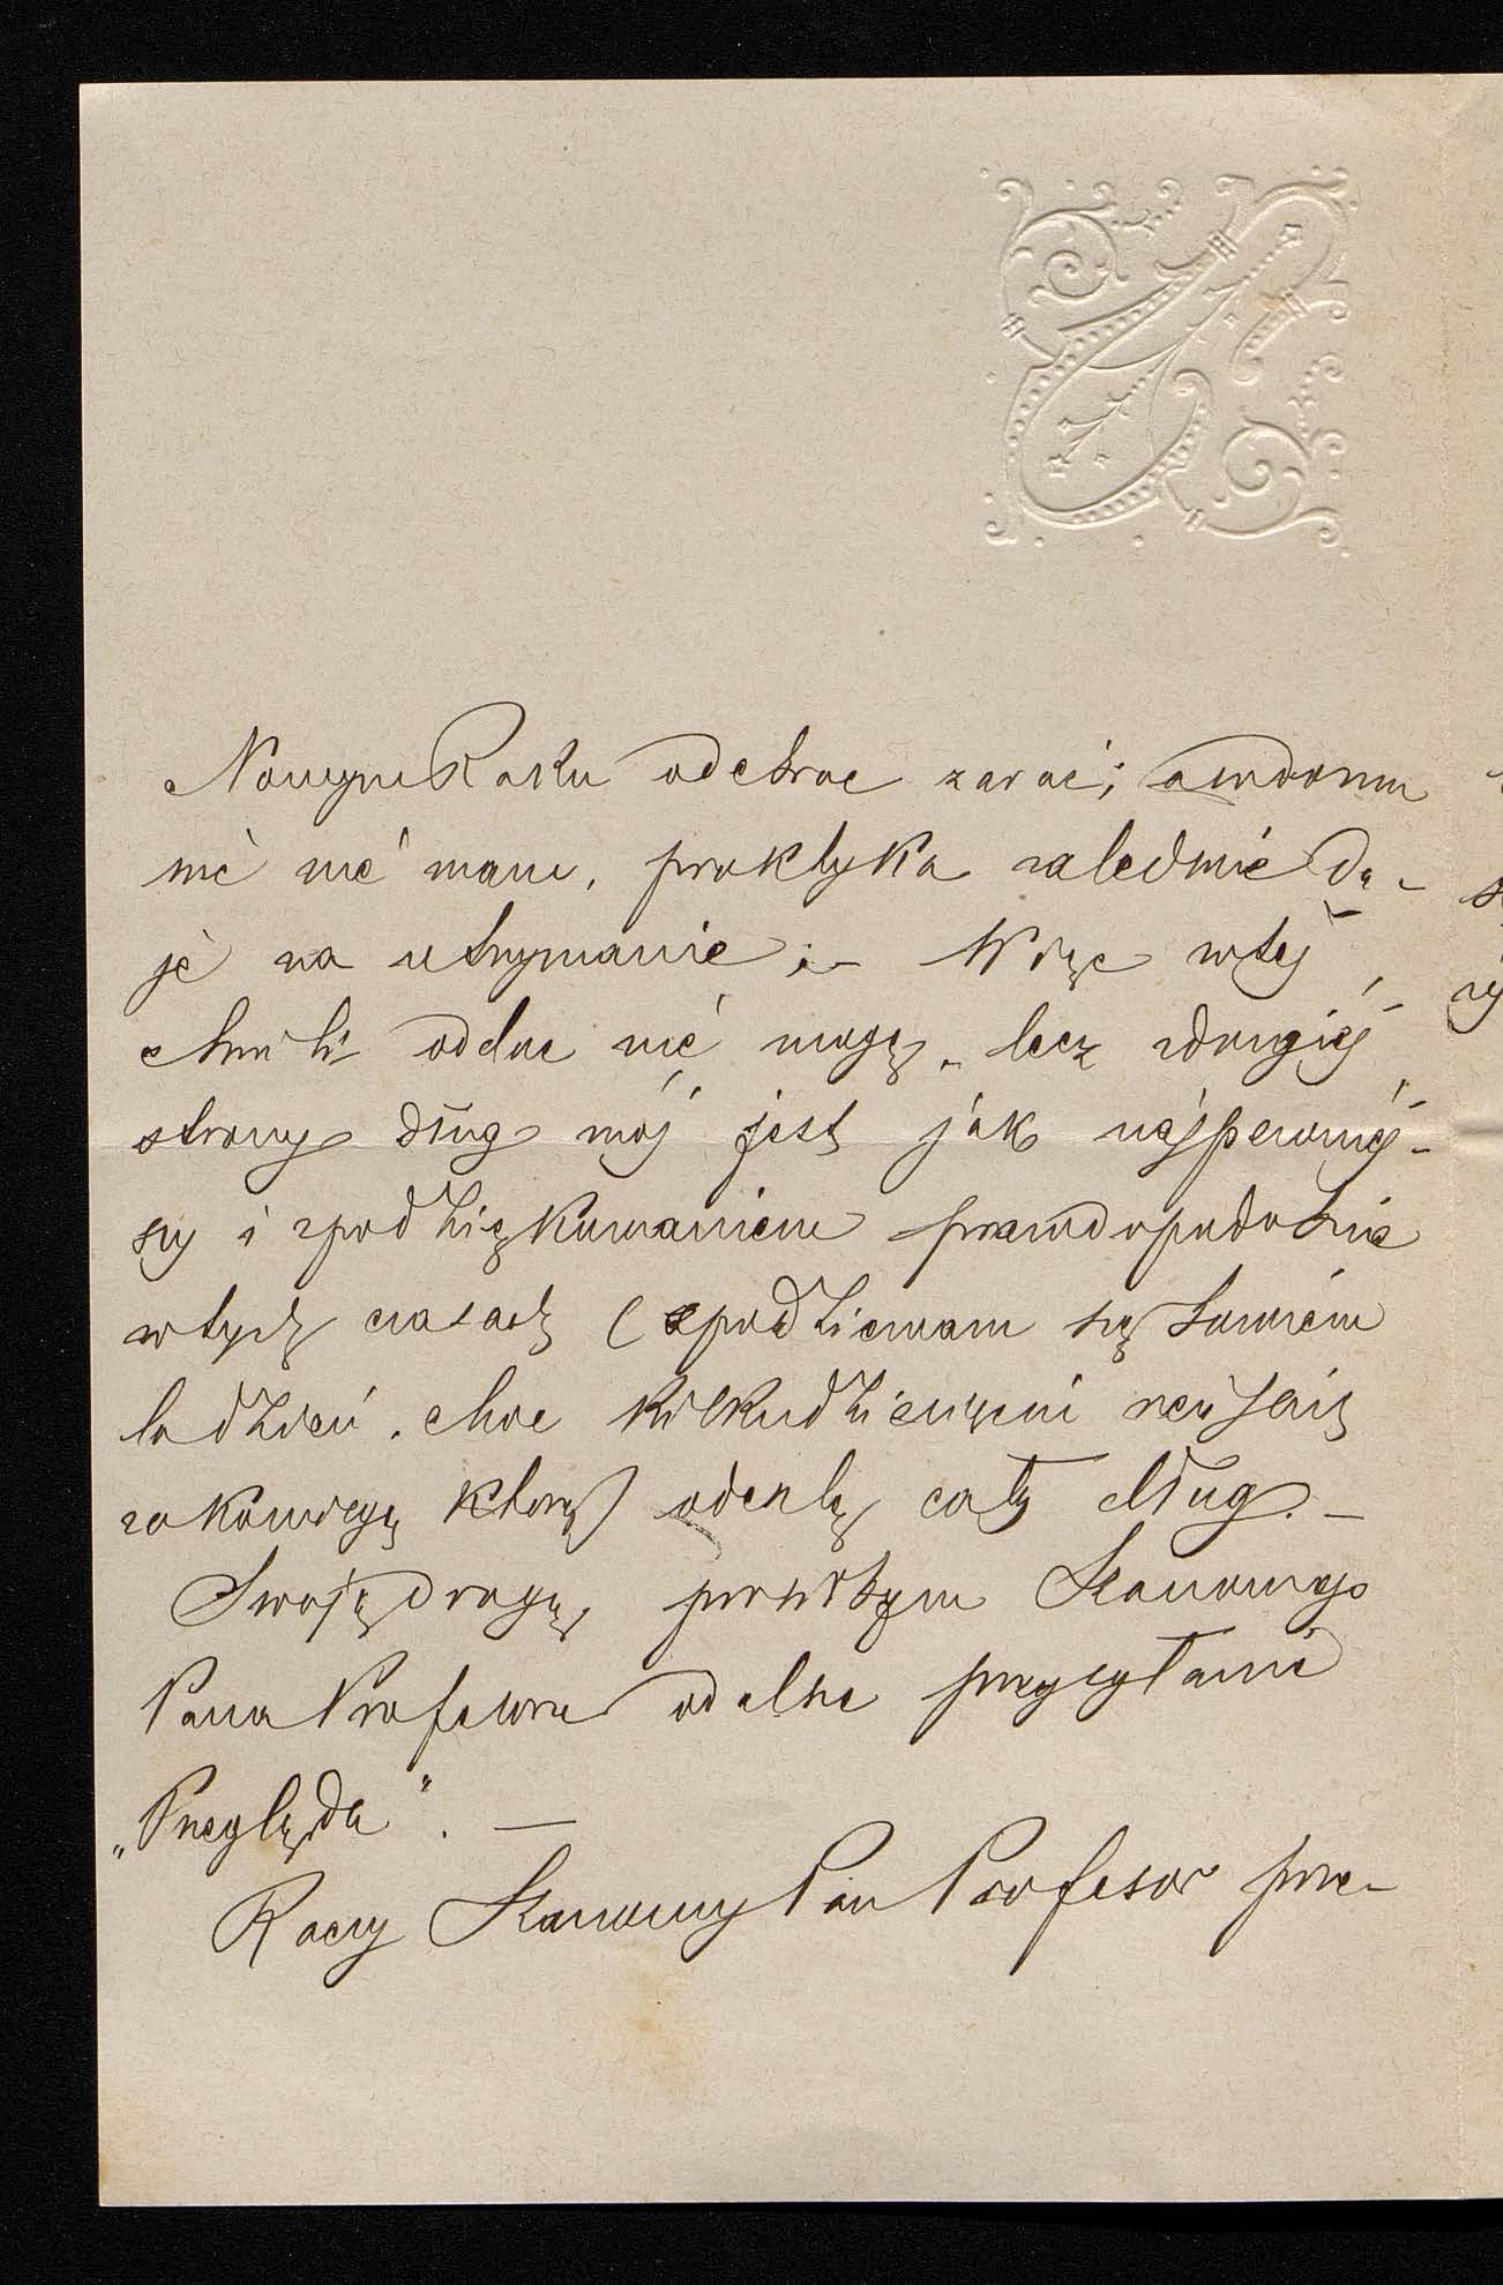 Nowym Roku odebrać zaraz; a w domu
nic nie mam, praktyka zaledwie da-
je na utrzymanie; – Więc w tej
chwili oddać nie mogę – lecz z drugiej
strony dług mój jest jak najpewniej-
szy i z podziękowaniem prawdopodobnie
w tych czasach (spodziewam się
lada dzień, choć kilkudziesięciu
za którą odeszlę cały dług. –
Swoją drogą, prosiłbym Szanownego
Pana Profesora o dalsze przysyłanie
„Przeglądu". –
Raczy Szanowny Pan Profesor prze-